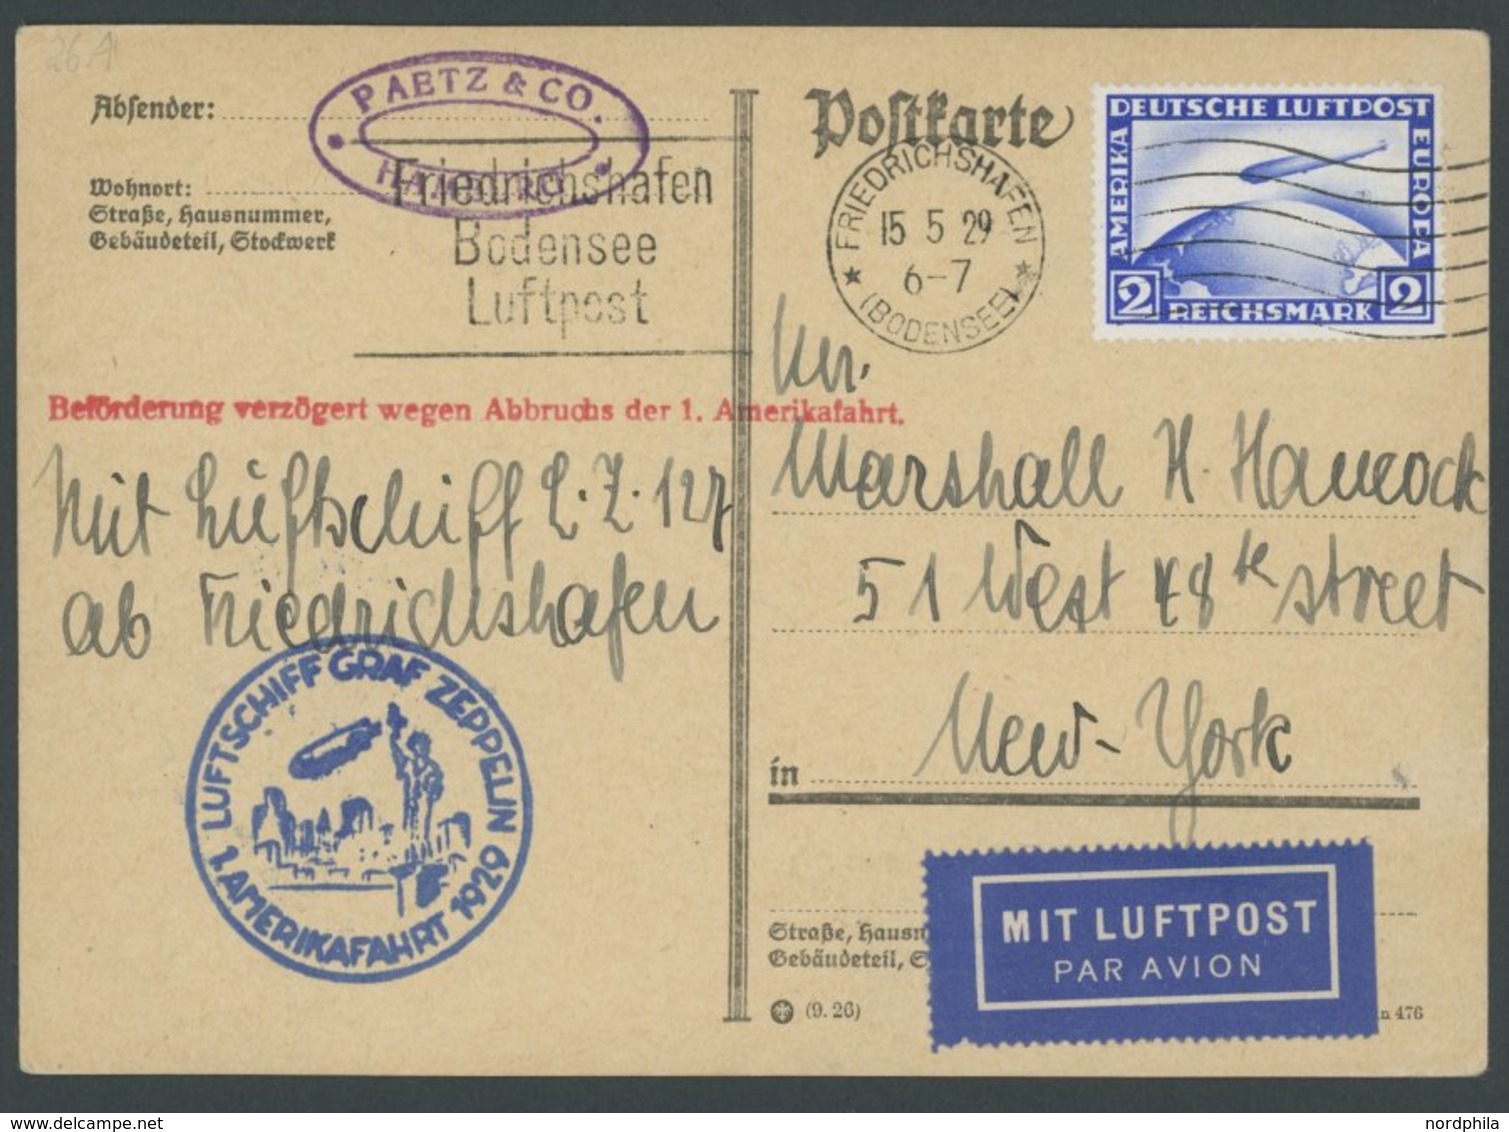 26 A
PAETZ & CO.
HAMBURG
Absender:
Wohnort:
Straße, Hausnummer,
Gebäudeteil, Stockwerk
Friedrichshafen
Bodensee
Luftpost
Postkarte
FRIEDRICHSHAFEN
15 5 29
6-7
(BODENSEE)
DEUTSCHE LUFTPOST
AMERIKA
EUROPA
2 REICHSMARK 2
Beförderung verzögert wegen Abbruchs der 1. Amerikafahrt.
Mit Luftschiff L.Z. 127
ab Friedrichshafen
LUFTSCHIFF GRAF ZEPPELIN
1. AMERIKAFAHRT 1929
Marshall H. Hancock
51 West 48th street
in New-York
Straße, Hausn
Gebäudeteil, S
MIT LUFTPOST
PAR AVION
(9. 26)
n 476
nordphila